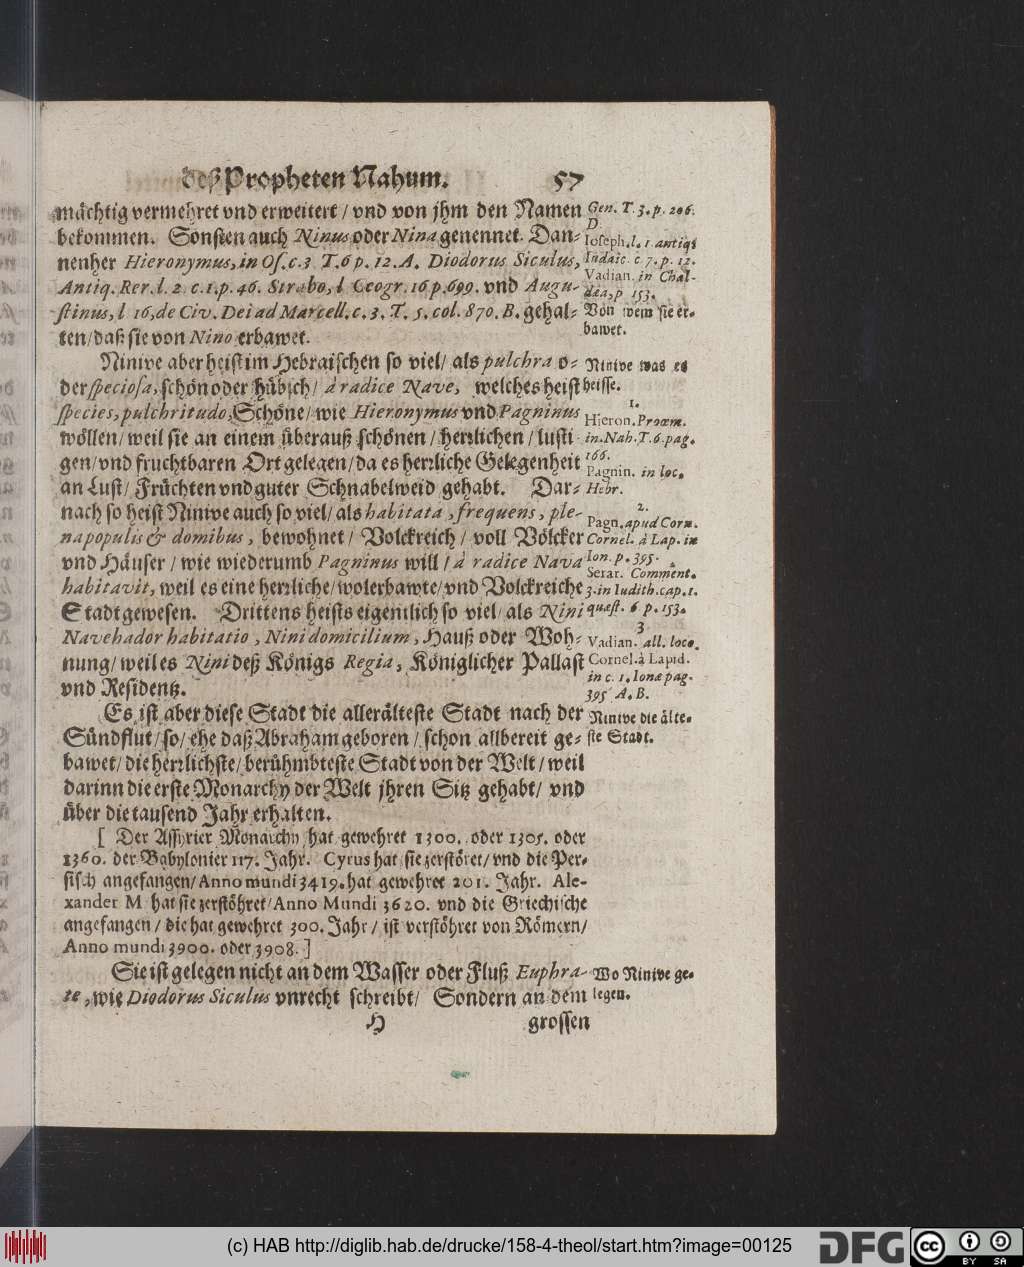 deß Propheten Nahum. 57
mächtig vermehret vnd erweitert / vnd von jhm den Namen
bekommen. Sonsten auch Ninus oder Nina genennet. Dan-
nenher Hieronymus, in Os. c. 3 T. 6 p. 12. A. Diodorus Siculus,
Antiq. Rer. l. 2. c. 1. p. 46. Strabo, l. Geogr. 16 p. 699. vnd Augu-
stinus, l 16, de Civ. Dei ad Marcell. c. 3. T. 5. col. 870. B. gehal-
ten / daß sie von Nino erbawet.
Ninive aber heist im Hebraischen so viel / als pulchra o-
der speciosa, schön oder hübsch / à radice Nave, welches heist
species, pulchritudo, Schöne / wie Hieronymus vnd Pagninus
wöllen / weil sie an einem überauß schönen / herrlichen / lusti-
gen / vnd fruchtbaren Ort gelegen / da es herrliche Gelegenheit
an Lust / Früchten vnd guter Schnabelweid gehabt. Dar-
nach so heist Ninive auch so viel / als habitata, frequens, ple-
na populis & domibus, bewohnet / Volckreich / voll Völcker
vnd Häuser / wie wiederumb Pagninus will / à radice Nava
habitavit, weil es eine herrliche / wolerbawte / vnd Volckreiche
Stadt gewesen. Drittens heists eigentlich so viel / als Nini
Navehador habitatio, Nini domicilium, Hauß oder Woh-
nung / weil es Nini deß Königs Regia, Königlicher Pallast
vnd Residentz.
Es ist aber diese Stadt die allerälteste Stadt nach der
Sündflut / so / ehe daß Abraham geboren / schon allbereit ge-
bawet / die herrlichste / berühmbteste Stadt von der Welt / weil
darinn die erste Monarchy der Welt jhren Sitz gehabt / vnd
über die tausend Jahr erhalten.
[ Der Assyrier Monarchy hat gewehret 1300. oder 1305. oder
1360. der Babylonier 117. Jahr. Cyrus hat sie zerstöret / vnd die Per-
sisch angefangen / Anno mundi 3419. hat gewehret 201. Jahr. Ale-
xander M hat sie zerstöhret / Anno Mundi 3620. vnd die Griechische
angefangen / die hat gewehret 300. Jahr / ist verstöhret von Römern /
Anno mundi 3900. oder 3908. ]
Sie ist gelegen nicht an dem Wasser oder Fluß Euphra-
te, wie Diodorus Siculus vnrecht schreibt / Sondern an dem
H grossen
Gen. T. 3. p. 206.
D.
Ioseph. l. 1. antiqi
Iudaic. c. 7. p. 12.
Vadian. in Chal-
dæa, p 153.
Von wem sie er-
bawet.
Ninive was es
heisse.
1.
Hieron. Proœm.
in. Nah. T. 6. pag.
166.
Pagnin. in loc.
Hebr.
2.
Pagn. apud Corn.
Cornel. à Lap. in
Ion. p. 395.
Serar. Comment.
3. in Iudith. cap. 1.
quest. 6 p. 153.
3
Vadian. all. loco.
Cornel. à Lapid.
in c. 1. Ionæ pag.
395 A. B.
Ninive die älte-
ste Stadt.
Wo Ninive ge-
legen.
(c) HAB http://diglib.hab.de/drucke/158-4-theol/start.htm?image=00125
DFG
cc BY SA